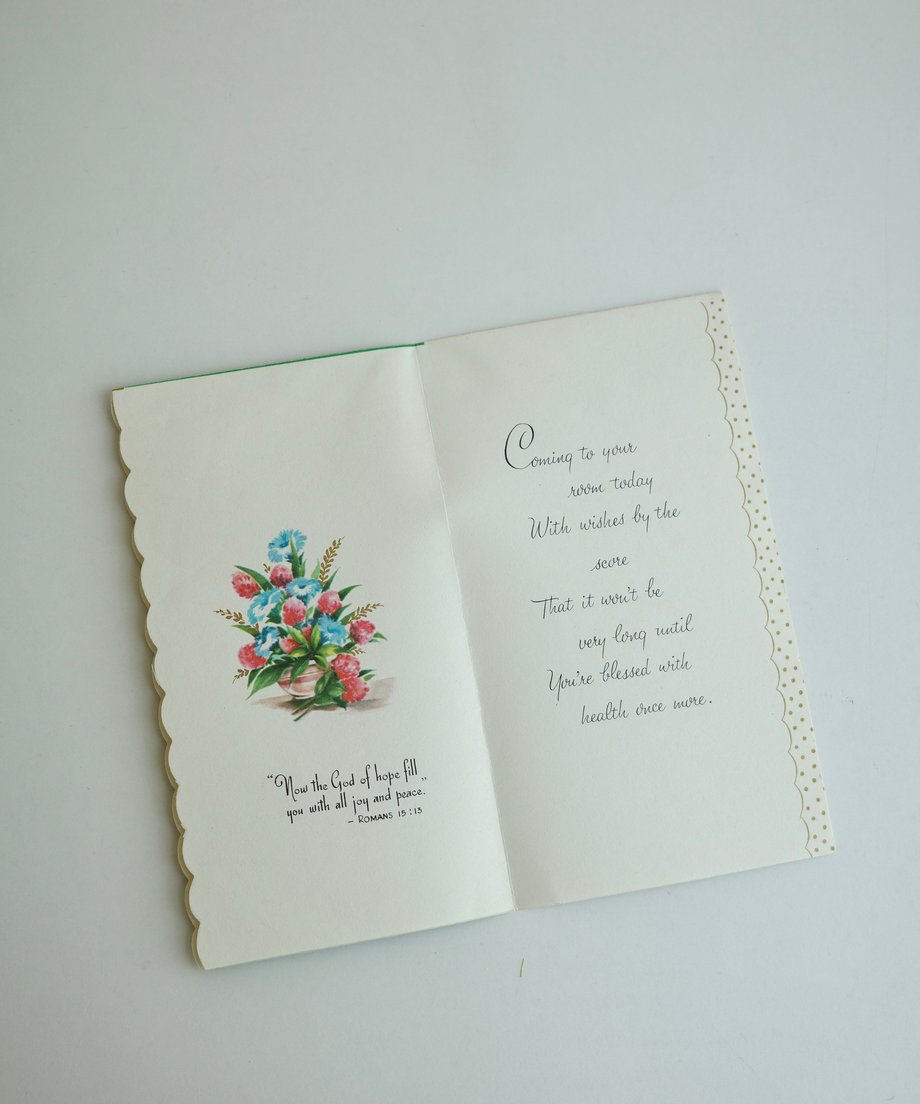 “Now the God of hope fill
you with all joy and peace.”
– ROMANS 15:13
Coming to your
room today
With wishes by the
score
That it won't be
very long until
You're blessed with
health once more.